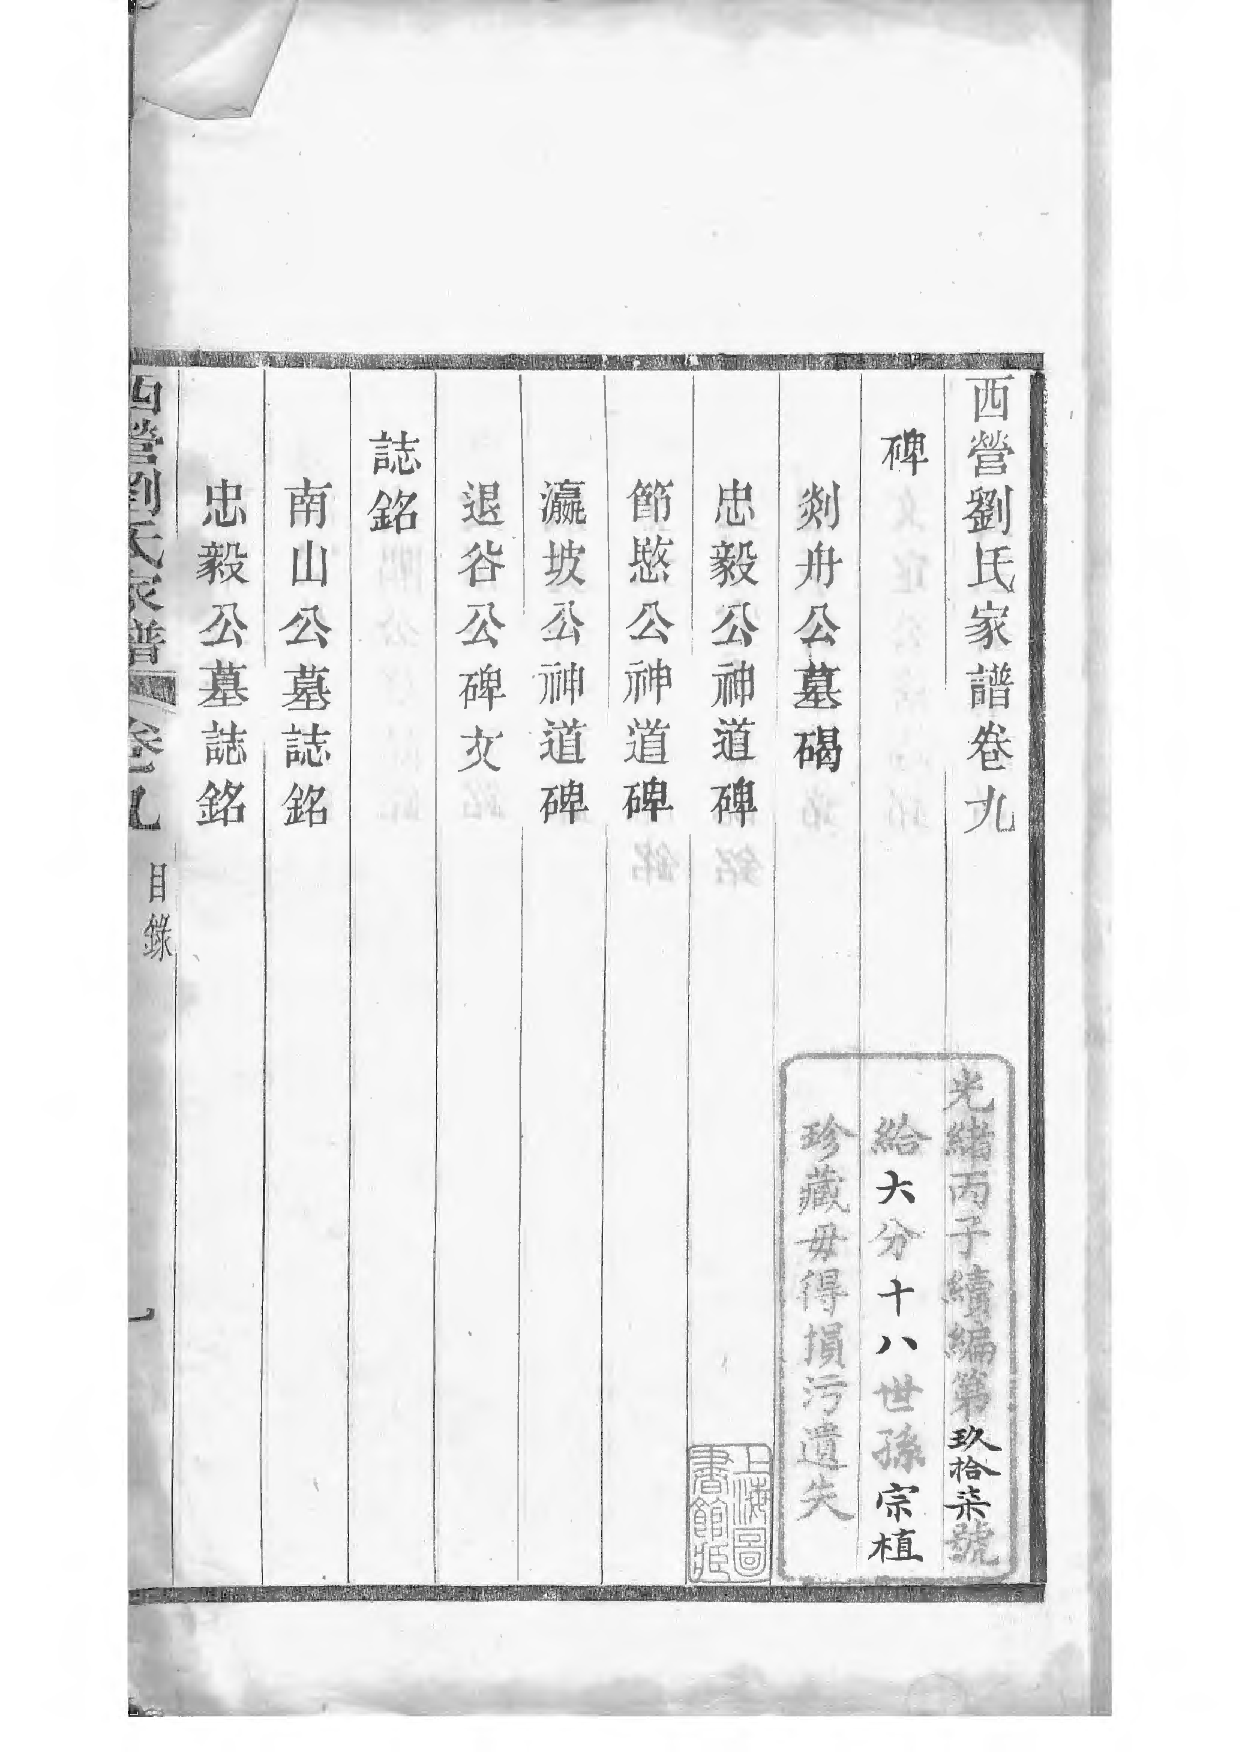 西營劉氏家譜卷九
碑
剡舟公墓碣
忠毅公神道碑
節愍公神道碑
瀛坡公神道碑
退谷公碑文
誌銘
南山公墓誌銘
忠毅公墓誌銘
西營劉氏家譜 卷九 目錄
光緒丙子續編第玖拾柒號
給大分十八世孫宗植
珍藏毋得損污遺失
上海圖
書館臧